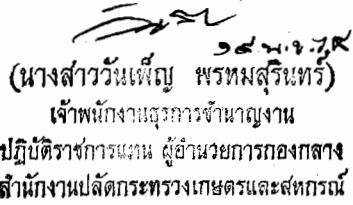 ๑๙ พ.ย. ๖๙
(นางสาววันเพ็ญ พรหมสุรินทร์)
เจ้าพนักงานธุรการชำนาญงาน
ปฏิบัติราชการแทน ผู้อำนวยการกองกลาง
สำนักงานปลัดกระทรวงเกษตรและสหกรณ์